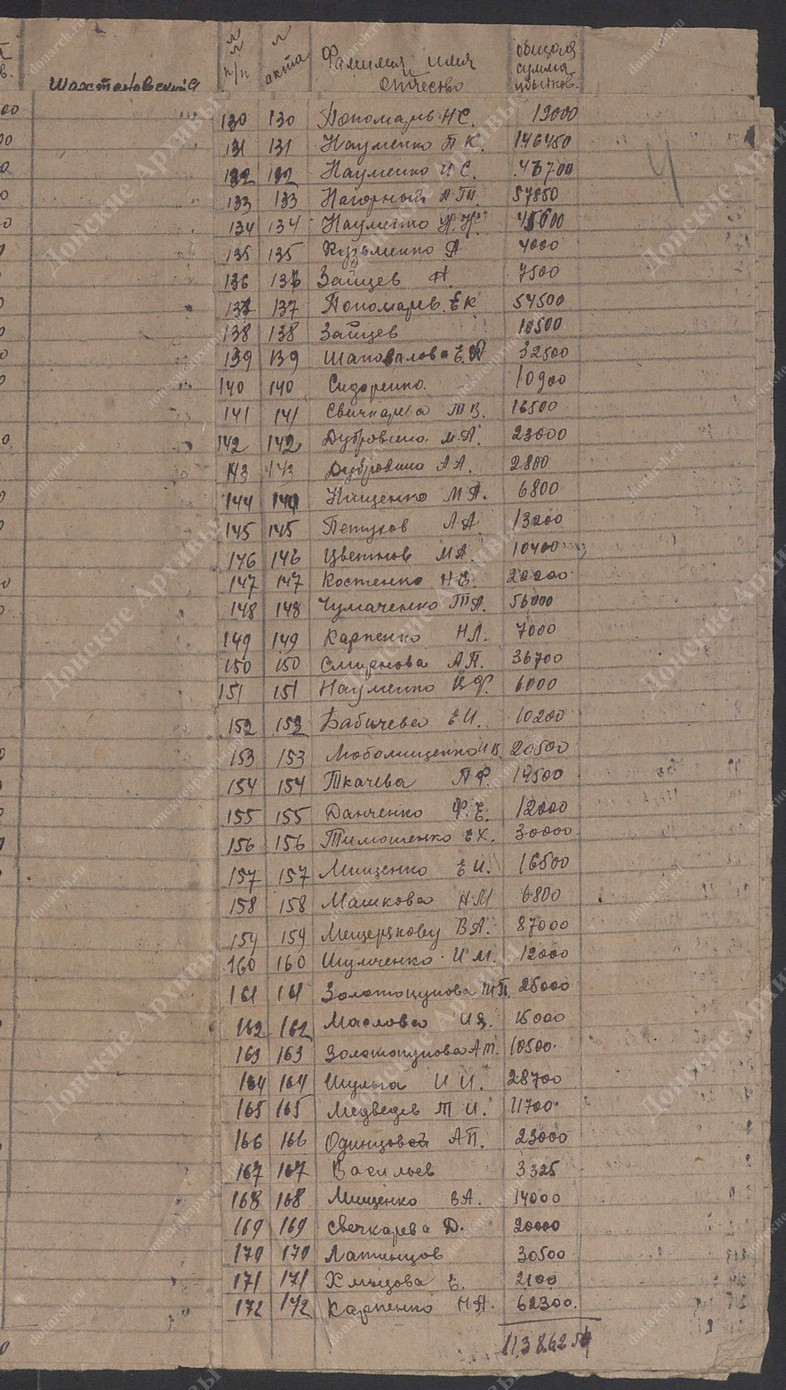 Шахтановский
№№ п/п № акта Фамилия имя отчество общая сумма убытков.
130 130 Пономарь Н.С. 19000
131 131 Науменко П К. 146450
132 132 Науменко И С.
133 133 Нагорный 57850
134 134 Науменко
135 135 Кузьменко А 4000
136 136 Зайцев 7500
137 137 Пономарев. Е К 54500
138 138 Зайцев 10500
139 139 Шаповалова Е. 32500
140 140 Сидоренко. 10900
141 141 Свечкарева Т В. 16500
142 142 Дубровина М.А. 23000
143 143 Дубровина А А. 2800
144 144 Нищенко М А. 6800
145 145 Петухов Л А 13200
146 146 Цветков М А. 10400
147 147 Костенко Н Е. 20000
148 148 Чумаченко Т А. 56000
149 149 Карпенко Н Л. 7000
150 150 Смирнова А П. 36700
151 151 Науменко В Ф. 6000
152 152 Бабичева Е И. 10200
153 153 20500
154 154 Ткачева П Ф. 19500
155 155 Данченко Ф. Е. 12000
156 156 Тимошенко Е Х. 30000
157 157 Мищенко Е И. 16500
158 158 Машкова Н М 6800
159 159 Мещерякову В А. 87000
160 160 Шульченко И М. 12000
161 161 Золотопупова М П. 25000
162 162 Маслова 15000
163 163 Золотопупова А Т. 10500.
164 164 Шульга И И. 28700
165 165 Медведев Т И. 11700
166 166 Одинцов А П. 23000
167 167 Васильев 3325
168 168 Мищенко В А. 14000
169 169 Свечкарева Д. 20000
170 170 Латинцов 30500
171 171 Хмыцова Е. 2100
172 172 Карпенко Н А. 62300.